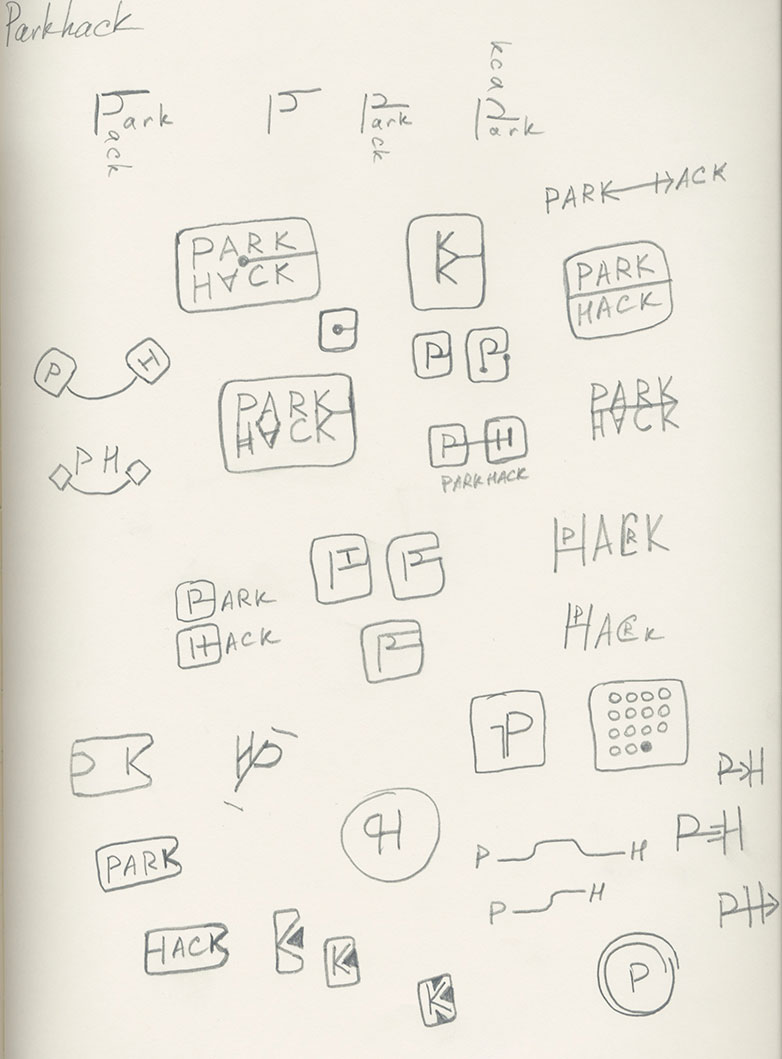 Parkhack
Park
ack
P
Park
ack
kca
Park
PARK HACK
PARK
HACK
K
K
PARK
HACK
P H
P P
PARK
HACK
PARK
HACK
P H
P H
PARKHACK
HACK
P R
PARK
HACK
HACK
P R
P
P K
P
P H
H
P H
P H
PARK
P H
P H
HACK
K
K
K
P